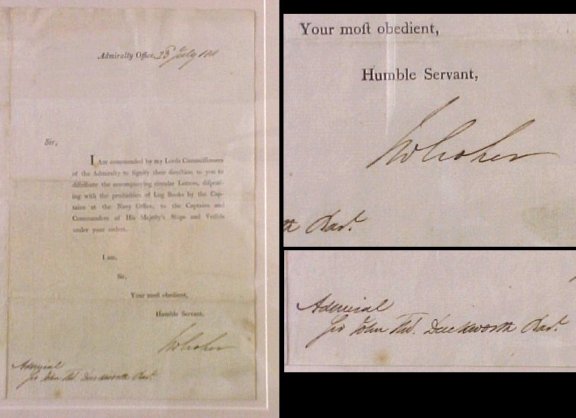 Admiralty Office, July
Sir,
I Am commanded by my Lords Commiſſioners
of the Admiralty to ſignify their direction to you to
diſtribute the accompanying circular Letters, diſpenſ-
ing with the production of Log Books by the Cap-
tains at the Navy Office, to the Captains and
Commanders of His Majeſty's Ships and Veſſels
under your orders.
I am,
Sir,
Your moſt obedient,
Humble Servant,
Croker
Admiral
Sir John Tho.s Duckworth Bar.t
Your moſt obedient,
Humble Servant,
Croker
Bar.t
Admiral
Sir John Tho.s Duckworth Bar.t